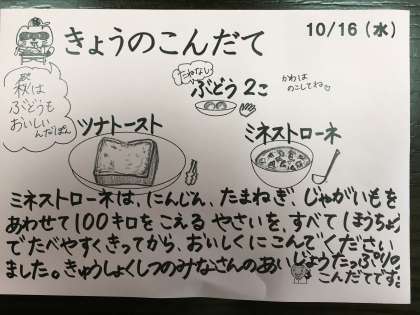 10/16(水)
きょうのこんだて
秋は
ぶどうも
おいしい
んだぽん
たねなし
ぶどう2こ
かわは
のこしてね
ツナトースト
ミネストローネ
ミネストローネは、にんじん、たまねぎ、じゃがいもを
あわせて100キロをこえるやさいを、すべてほうちょう
でたべやすくきってから、おいしくにこんでください
ました。きゅうしょくしつのみなさんのあいじょうたっぷりの
こんだてです。